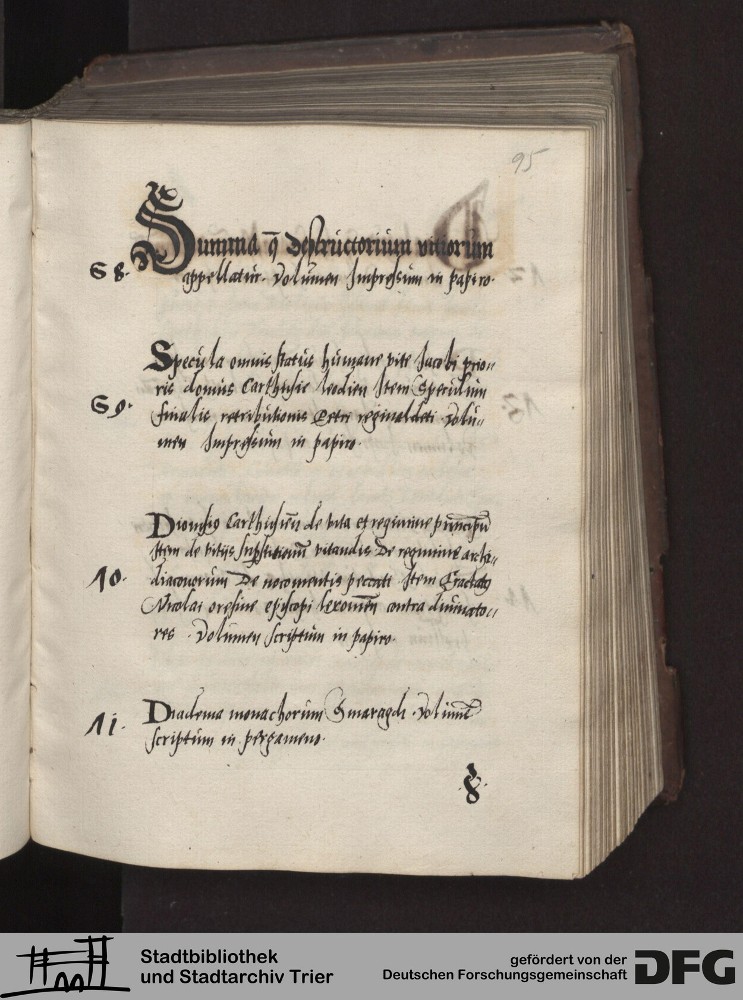 95
Summa q̄ destructorium vitiorum
S 8. appellatur. Volumen Impressum in papiro.
Specula omnis status humane vite Jacobi prio=
ris domus Carthusie leodien Item Speculum
S 9. finalis retributionis Petri reginaldeti Volu=
men Impressum in papiro.
Dionisio Carthusień de vita et regimine principū
Item de vitijs supstitionū vitandis De regimine archi=
10. diaconorum De nocumentis peccati Item Tractatꝯ
Nicolai oresme episcopi lexonień contra diuinato=
res. Volumen scriptum in papiro.
11. Diadema monachorum Smaragdi. Volumē
scriptum in pergameno.
Stadtbibliothek
und Stadtarchiv Trier
gefördert von der
Deutschen Forschungsgemeinschaft
DFG